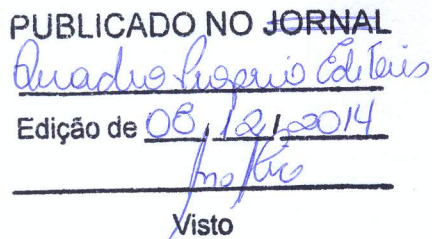 PUBLICADO NO JORNAL
Quadro Proprio Editais
Edição de 08/12/2014
Visto